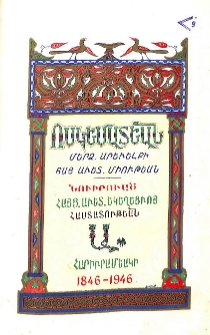 9
ՈՍԿԵՄԱՏԵԱՆ
ՄԵՐՁ. ԱՐԵՒԵԼՔԻ
ՀԱՅ ԱՒԵՏ. ՄԻՈՒԹԵԱՆ
ՆՈՒԻՐՈՒԱԾ
ՀԱՅՑ. ԱՒԵՏ. ԵԿԵՂԵՑՒՈՅ
ՀԱՍՏԱՏՈՒԹԵԱՆ
Ա
ՀԱՐԻՒՐԱՄԵԱԿԻ
1846-1946